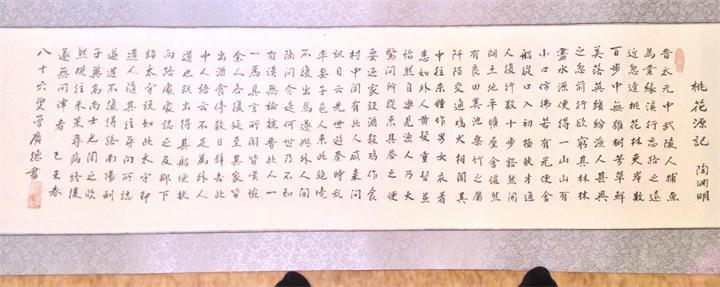 桃花源记　陶渊明
晋太元中武陵人捕魚
為業緣溪行忘路之遠
近忽逢桃花林夹岸数
百步中無雜樹芳草鮮
美落英繽紛漁人甚異
之復前行欲窮其林林
盡水源便得一山山有
小口彷彿若有光便舍
船從口入初極狹才通
人復行数十步豁然開
朗土地平曠屋舍儼然
有良田美池桑竹之屬
阡陌交通鸡犬相聞其
中往来種作男女衣著
悉如外人黄髮垂髫並
怡然自樂見漁人乃大
驚問所從来具答之便
要還家設酒殺鸡作食
村中聞有此人咸来問
訊自云先世避秦時乱
率妻子邑人来此絶境
不復出焉遂與外人間
隔問今是何世乃不知
有漢無論魏晋此人一
一為具言所聞皆嘆惋
余人各復延至其家皆
出酒食停数日辞去此
中人语云不足為外人
道也既出得其船便扶
向路處處誌之及郡下
詣太守说如此太守即
遣人隨其往尋向所誌
遂迷不復得路南陽刘
子驥高尚士也聞之欣
然規往未果尋病終後
遂無問津者　乙未春
八十六叟曾廣德書